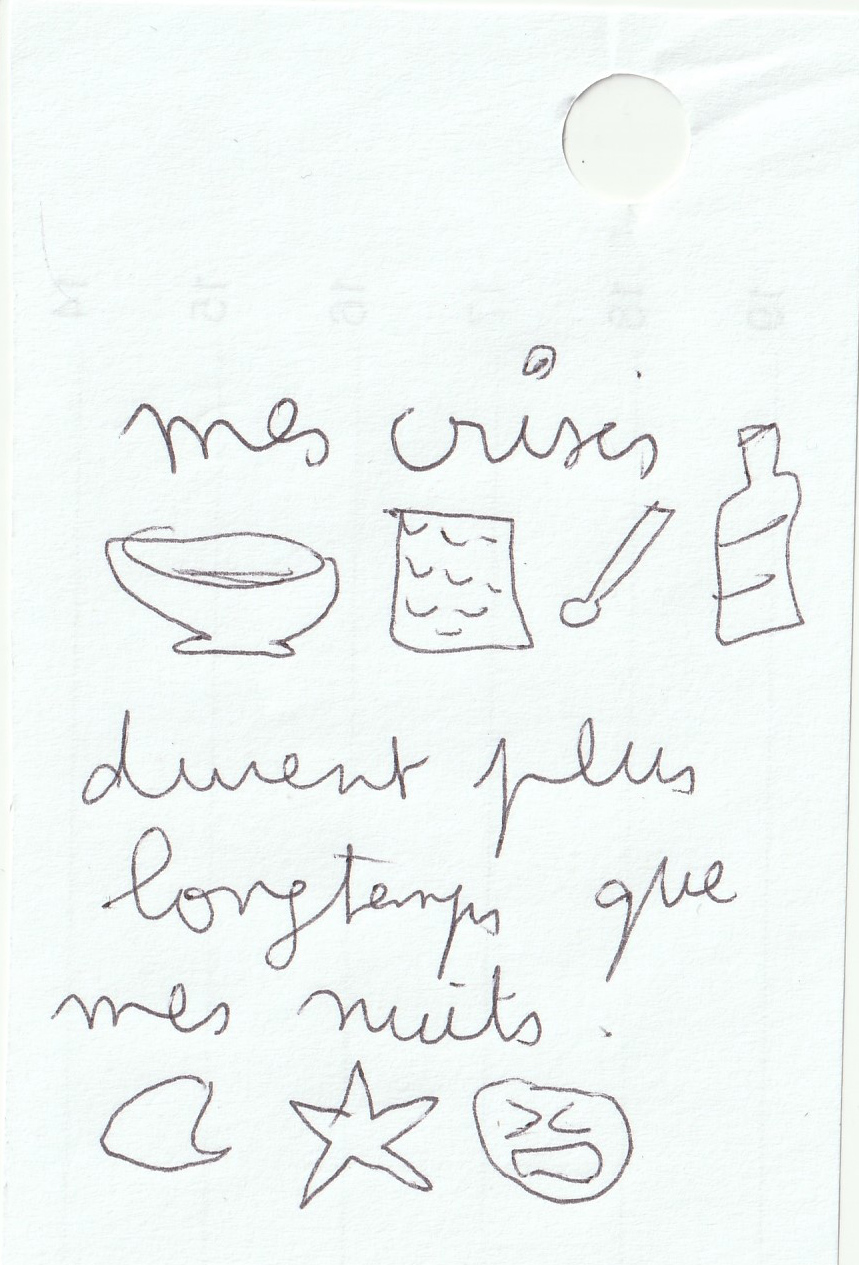 mes crises
durent plus
longtemps que
mes nuits.